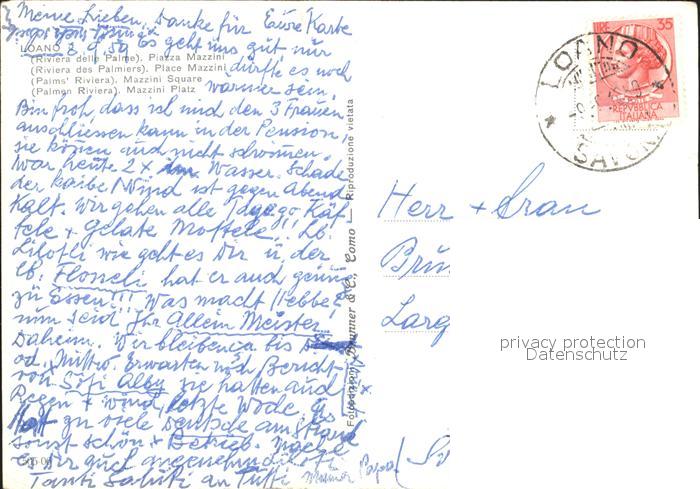 Meine Lieben, Danke für Eure Karte
LOANO 2.9.59 Es geht uns gut, nur
(Riviera delle Palme). Piazza Mazzini
(Riviera des Palmiers). Place Mazzini dürfte es noch
(Palms' Riviera). Mazzini Square
(Palmen Riviera). Mazzini Platz wärmer sein,
Bin froh, dass ich mich den 3 Frauen
anschliessen kann in der Pension,
sie können auch nicht schwimmen.
War heute 2 x im Wasser. Schade
der Wind ist gegen Abend
Kalt. Wir gehen alle Tage go Käf
fele + Gelate Lb.
wie geht es Dir u. der
lb. hat er auch genug
zu Essen!!! Was macht Hebbe,
nun seid Ihr Allein Meister
Daheim. Wir bleiben bis
od. Mittw. Erwarten noch Bericht
von Alby sie hatten auch
Regen + Wind, letzte Woche.
Hatt zu viele deutsche am Strand
sonst schön + Betrieb.
Tanti Saluti an Tutti Papa
Fotoedizioni Brunner & C., Como — Riproduzione vietata
LIRE 35
REPUBBLICA
ITALIANA
LOANO
SAVONA
Herr + Frau
Brun
Larg
privacy protection
Datenschutz